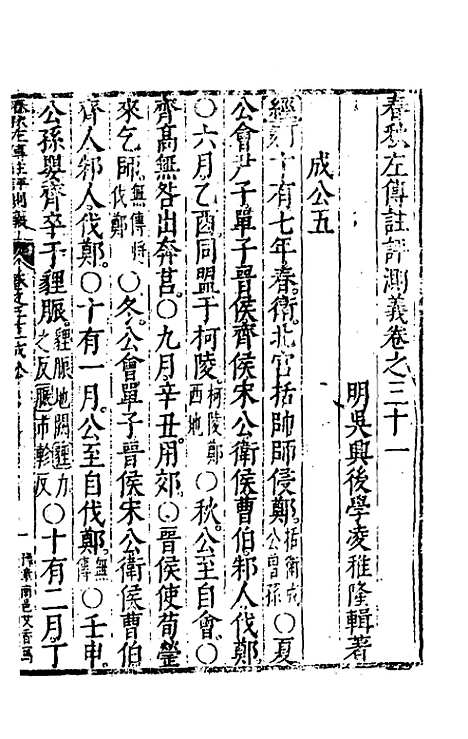 春秋左傳註評測義卷之三十一
明吳興後學凌稚隆輯著
成公五
經丁亥十有七年春衛北宮括帥師侵鄭括衛成公曾孫○夏
公會尹子單子晉侯齊侯宋公衛侯曹伯邾人伐鄭
○六月乙酉同盟于柯陵柯陵鄭西地○秋公至自會○
齊高無咎出奔莒○九月辛丑用郊○晉侯使荀罃
來乞師無傳將伐鄭○冬公會單子晉侯宋公衛侯曹伯
齊人邾人伐鄭○十有一月公至自伐鄭無傳○壬申
公孫嬰齊卒于貍脤貍脤地闕貍力之反脤市軫反○十有二月丁